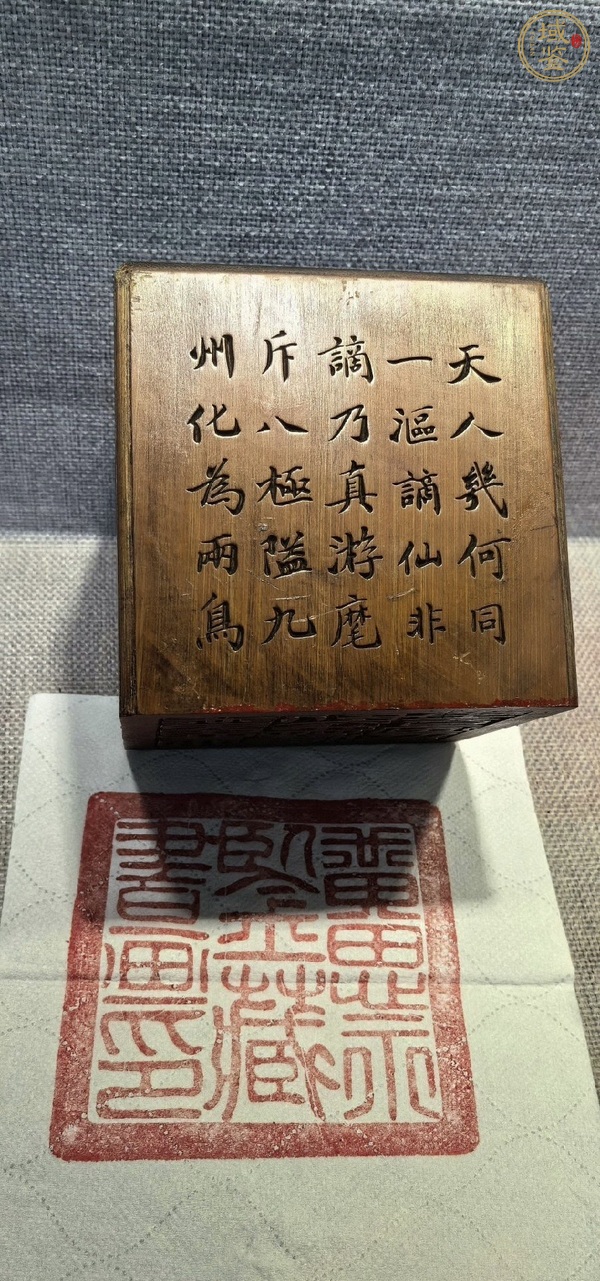 域鉴
天人幾何同
一漚謫仙非
謫乃真游麾
斥八極隘九
州化為兩鳥
藏
書畫印